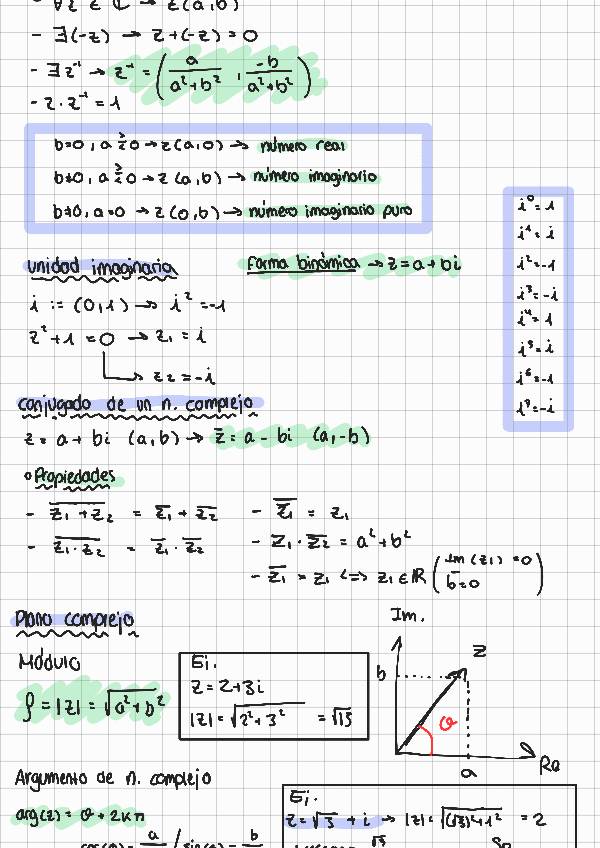 ∀z ∈ ℂ → z(a,b)
- ∃(-z) → z+(-z) = 0
- ∃z⁻¹ → z⁻¹ = (a/(a²+b²), -b/(a²+b²))
- z·z⁻¹ = 1
b=0, a≷0 → z(a,0) → número real
b≠0, a≷0 → z(a,b) → número imaginario
b≠0, a=0 → z(0,b) → número imaginario puro
i⁰=1
i¹=i
i²=-1
i³=-i
i⁴=1
i⁵=i
i⁶=-1
i⁷=-i
unidad imaginaria
forma binómica → z=a+bi
i := (0,1) → i²=-1
z²+1=0 → z₁=i
→ z₂=-i
conjugado de un n. complejo
z = a+bi (a,b) → z̅ = a-bi (a,-b)
o Propiedades
- \overline{z₁+z₂} = z̅₁+z̅₂
- \overline{z₁·z₂} = z̅₁·z̅₂
- \overline{z̅₁} = z₁
- z₁·z̅₂ = a²+b²
- z̅₁ = z₁ <=> z₁∈ℝ (Im(z₁)=0
b=0)
Plano complejo
Módulo
ρ=|z|=√(a²+b²)
Ej.
z=2+3i
|z|=√(2²+3²) =√13
Im.
z
b
θ
a
Re
Argumento de n. complejo
arg(z)= θ+2kπ
Ej.
z=√3+i → |z|=√((√3)²+1²) =2